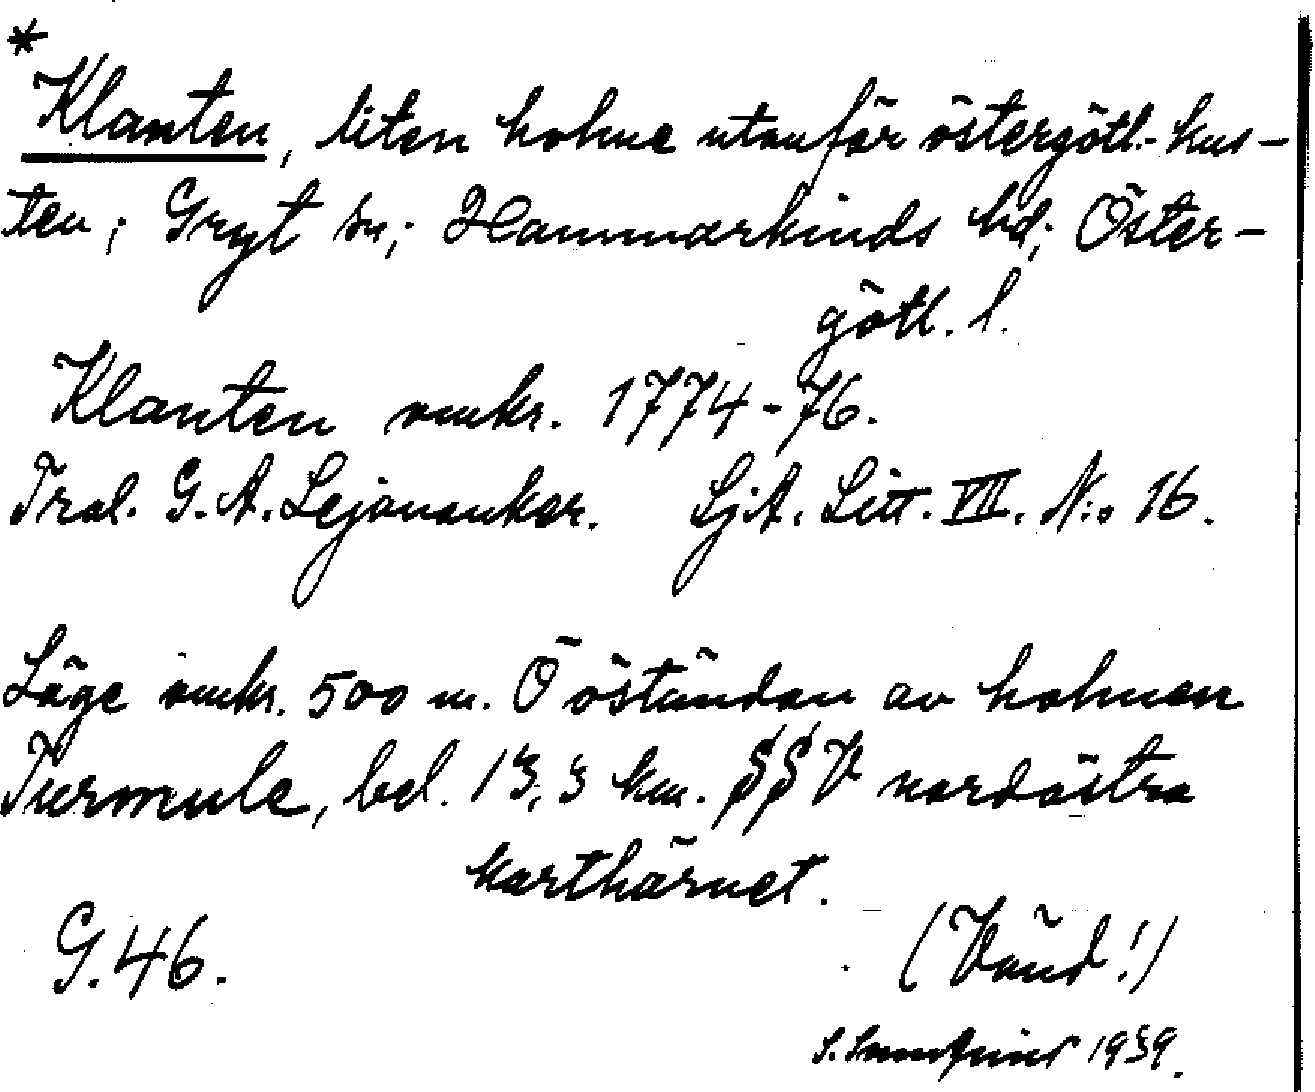 *
Klanten, liten holme utanför östergötl. kus-
ten; Gryt sn; Hammarkinds hd; Öster-
götl. l.
Klanten omkr. 1774-76.
Tral. G. A. Lejonanker. LjA. Litt. VII. N:o 16.
Läge omkr. 500 m. Ö östandan av holmen
Turmule, bel. 13,3 km. SSV nordöstra
karthörnet.
G. 46.
(Vänd!)
S. 1939.